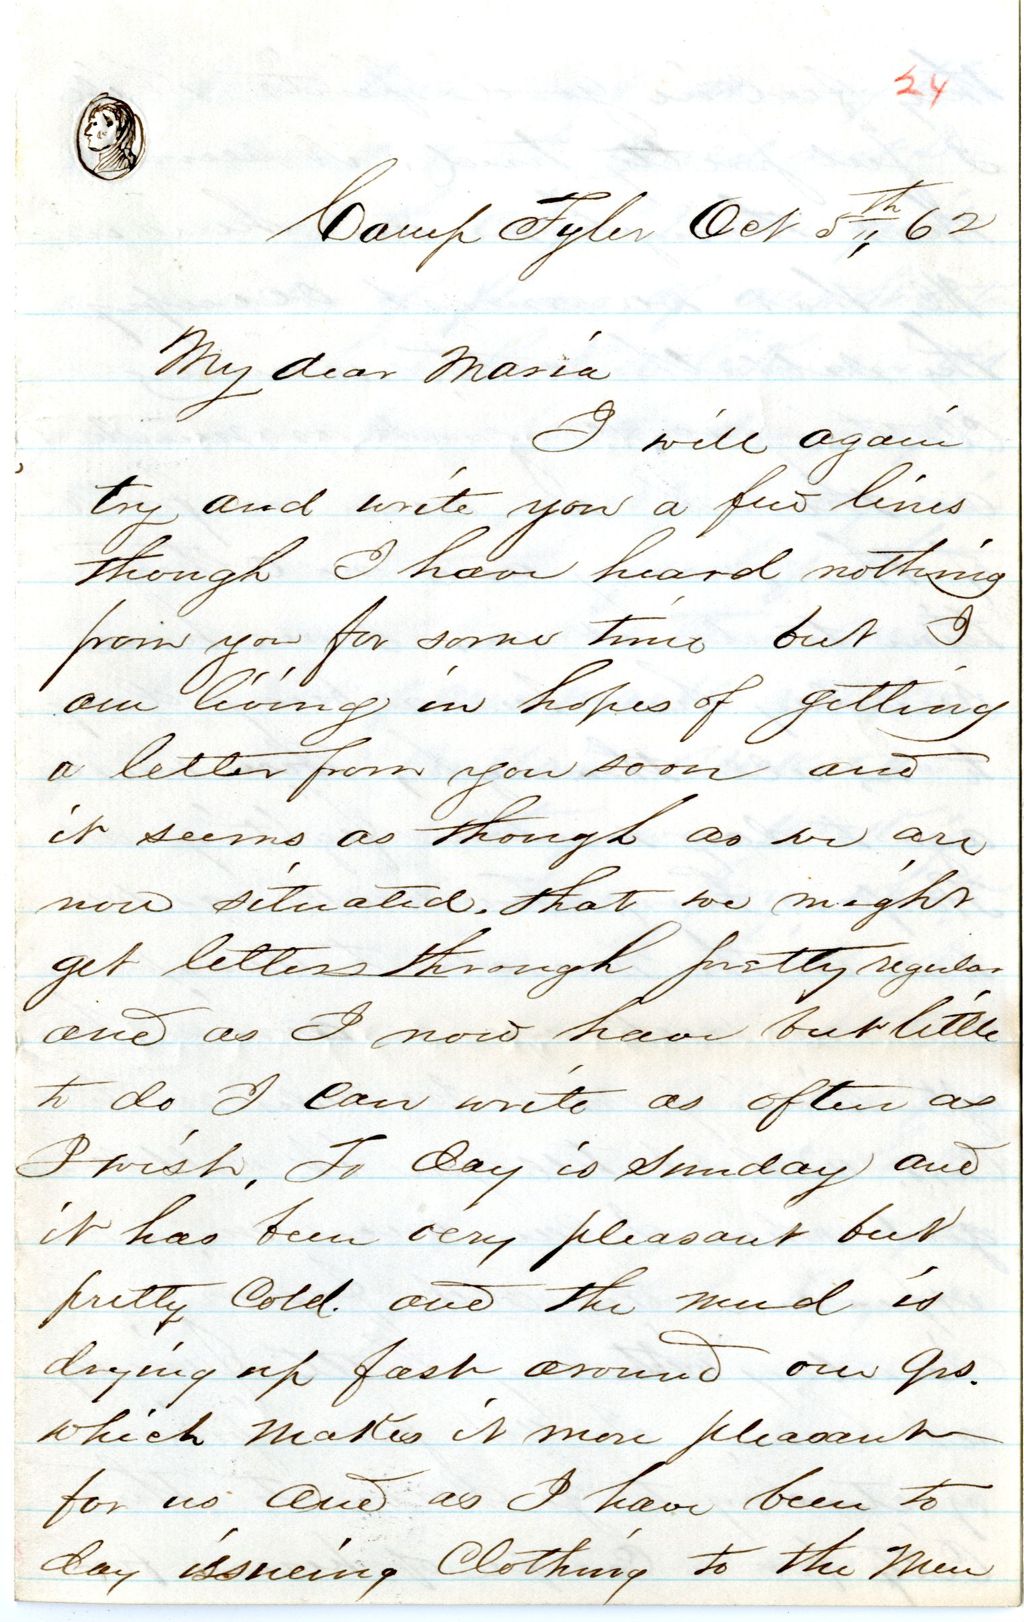 24
Camp Tyler Oct 5th 62
My dear Maria
I will again
try and write you a few lines
though I have heard nothing
from you for some time but I
am living in hopes of getting
a letter from you soon and
it seems as though as we are
now situated. that we might
get letters through pretty regular
and as I now have but little
to do I can write as often as
I wish, To day is Sunday and
it has been very pleasant but
pretty Cold. and the mud is
drying up fast around our Qrs.
which makes it more pleasant
for us and as I have been to
day issueing Clothing to the Men